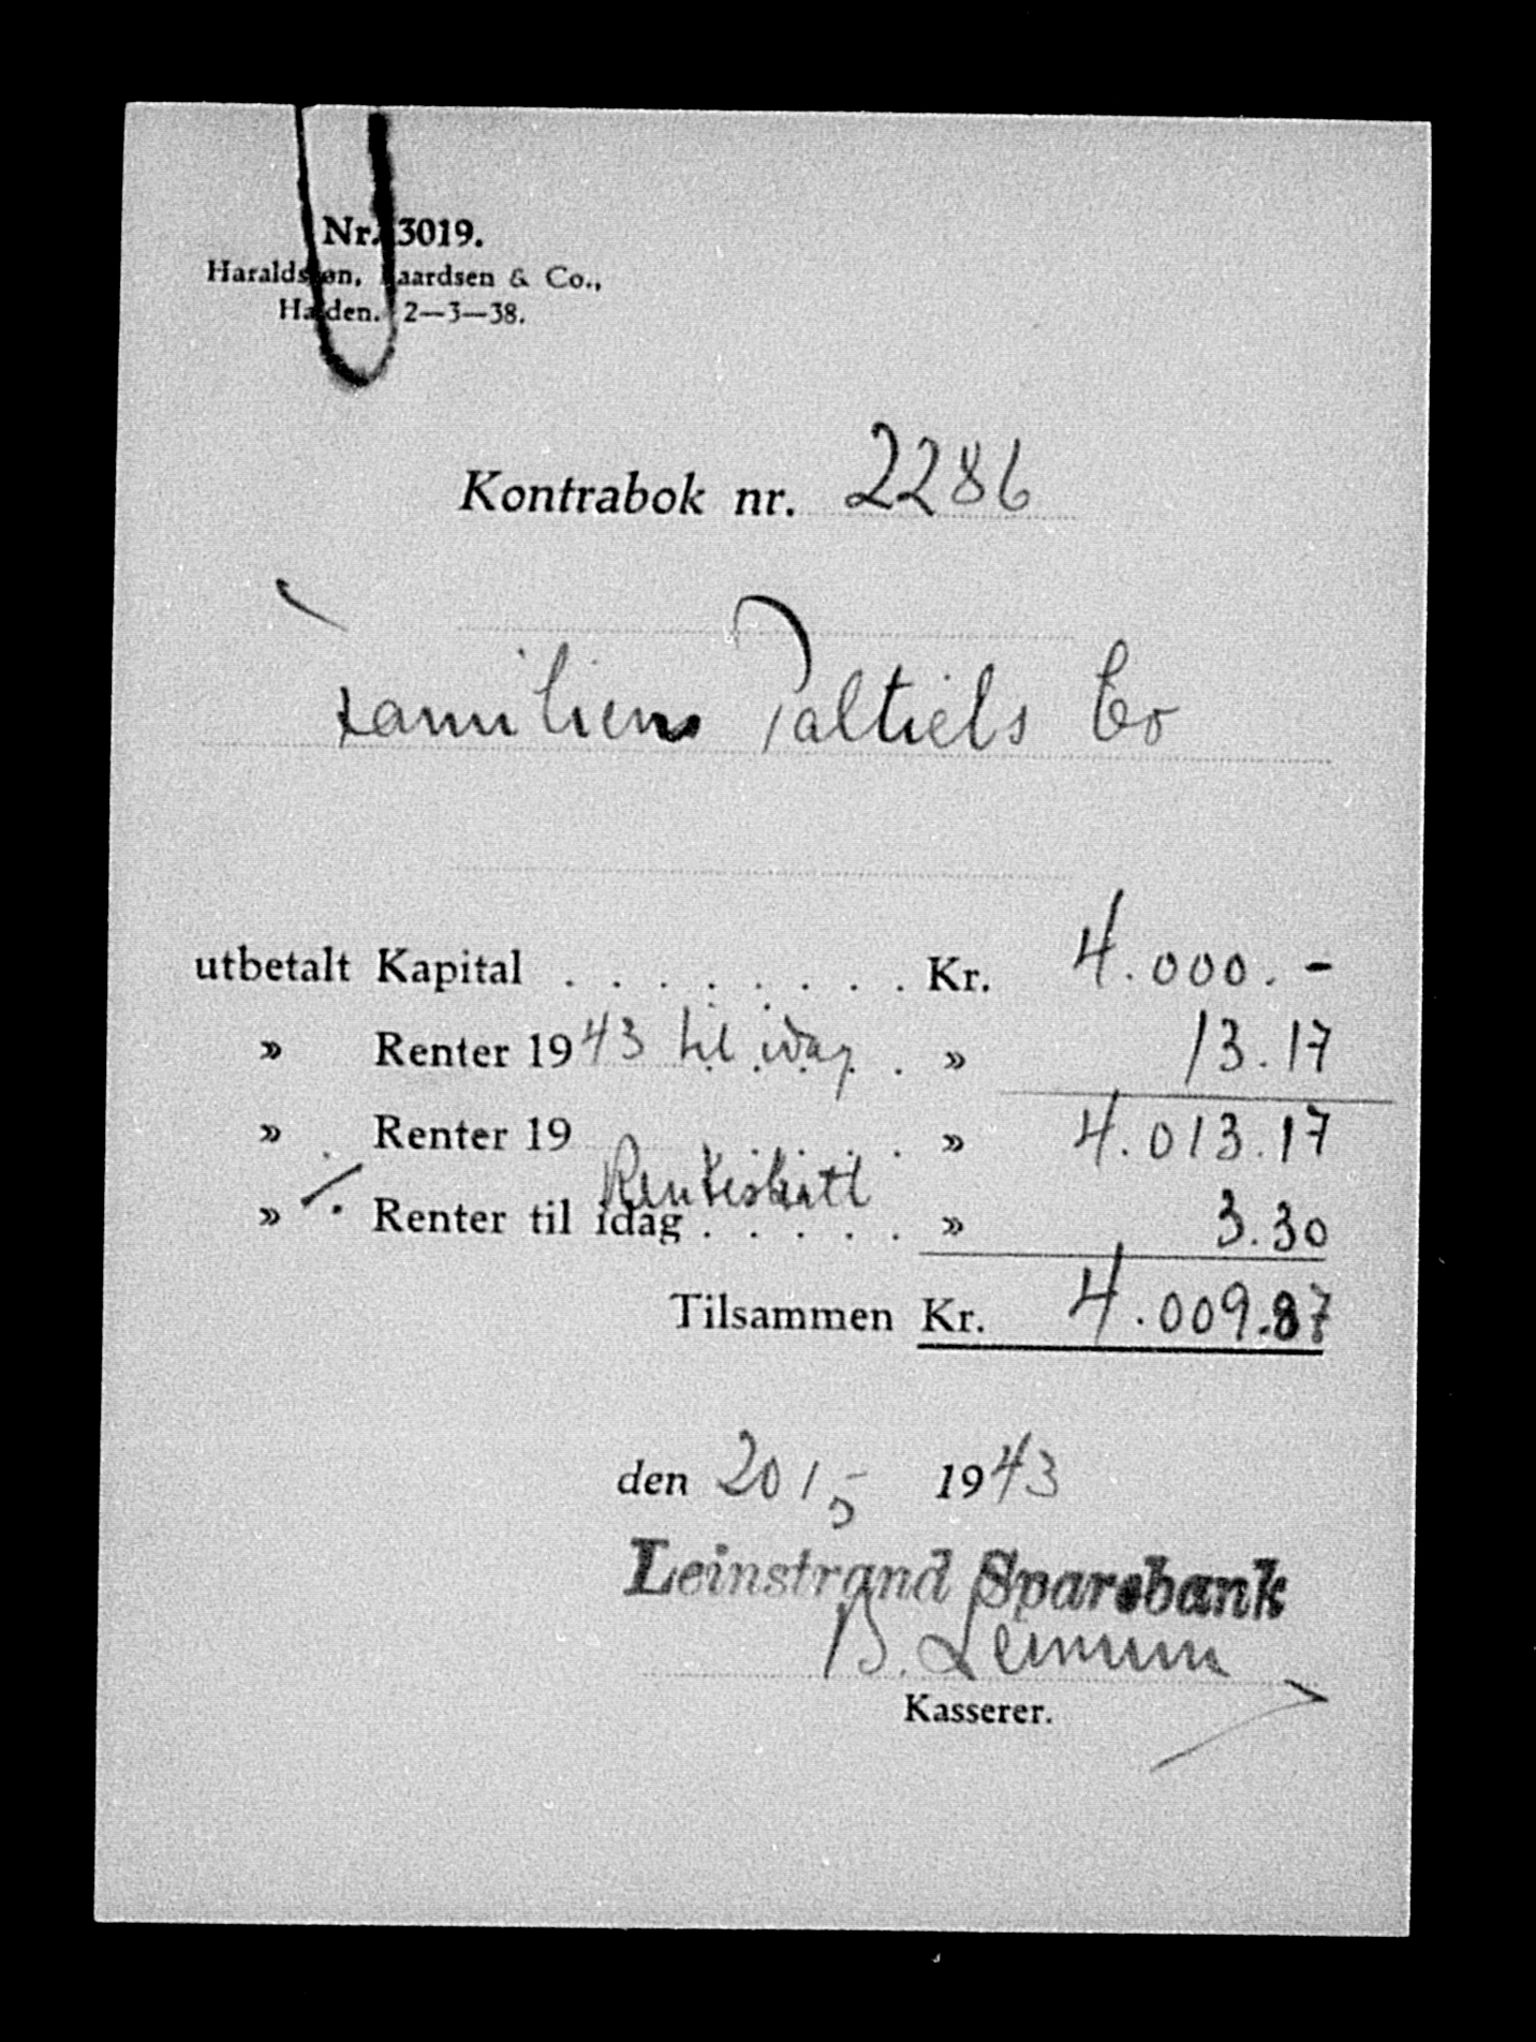 Nr. 3019.
Haraldssøn, Kaardsen & Co.,
Halden. 2—3—38.
Kontrabok nr. 2286
Familien Paltiels Co
utbetalt Kapital . . . . . . . . Kr. 4.000.-
» Renter 1943 til idag . » 13.17
» Renter 19 . . . . » 4.013.17
» ./. Renter til idag . . . . . » 3.30
Renteskatt
Tilsammen Kr. 4.009.87
den 20/5 1943
Leinstrand Sparebank
B. Lemum
Kasserer.